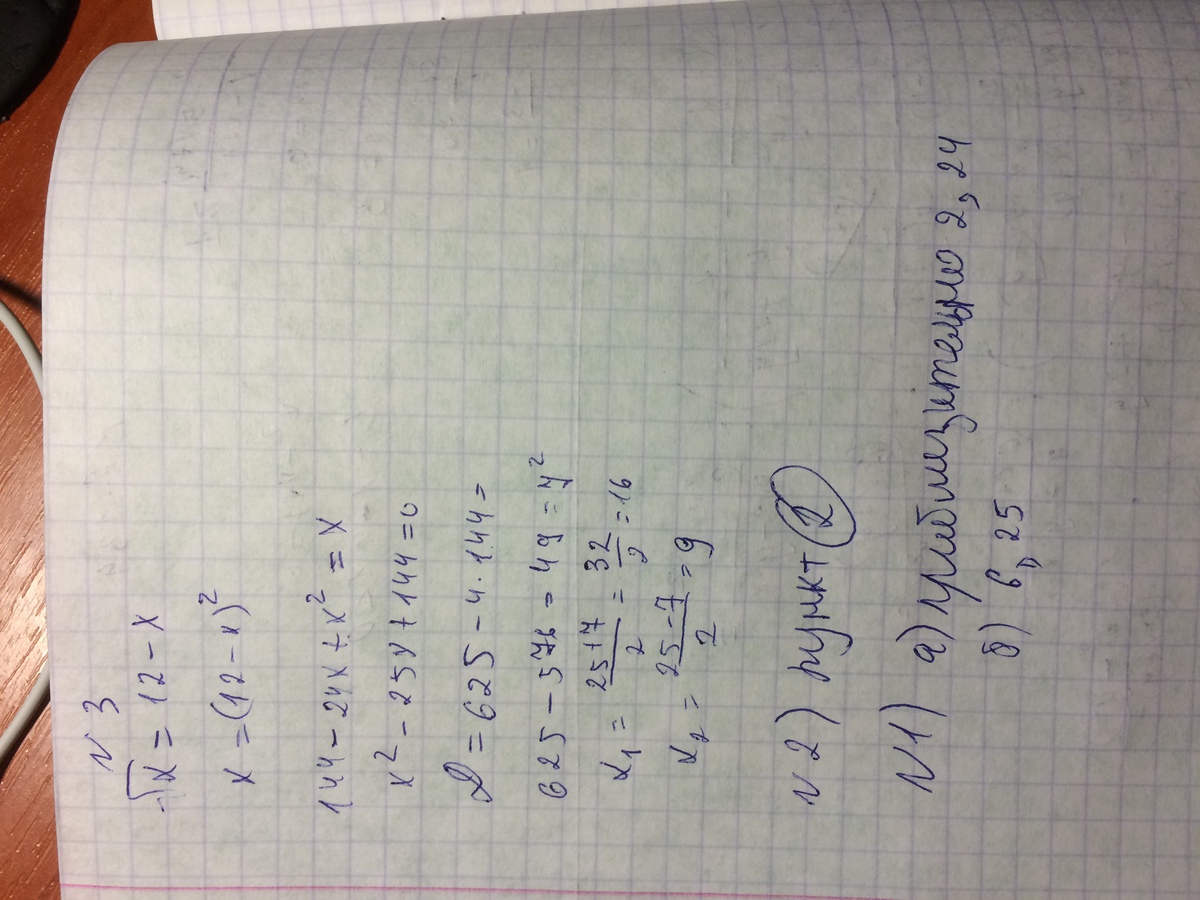 N 3
√x = 12 - x
x = (12 - x)²
144 - 24x + x² = x
x² - 25x + 144 = 0
D = 625 - 4 · 144 =
625 - 576 = 49 = 7²
x₁ = (25+7)/2 = 32/2 = 16
x₂ = (25-7)/2 = 9
N 2) пункт 2
N 1) а) приблизительно 2,24
б) 6,25